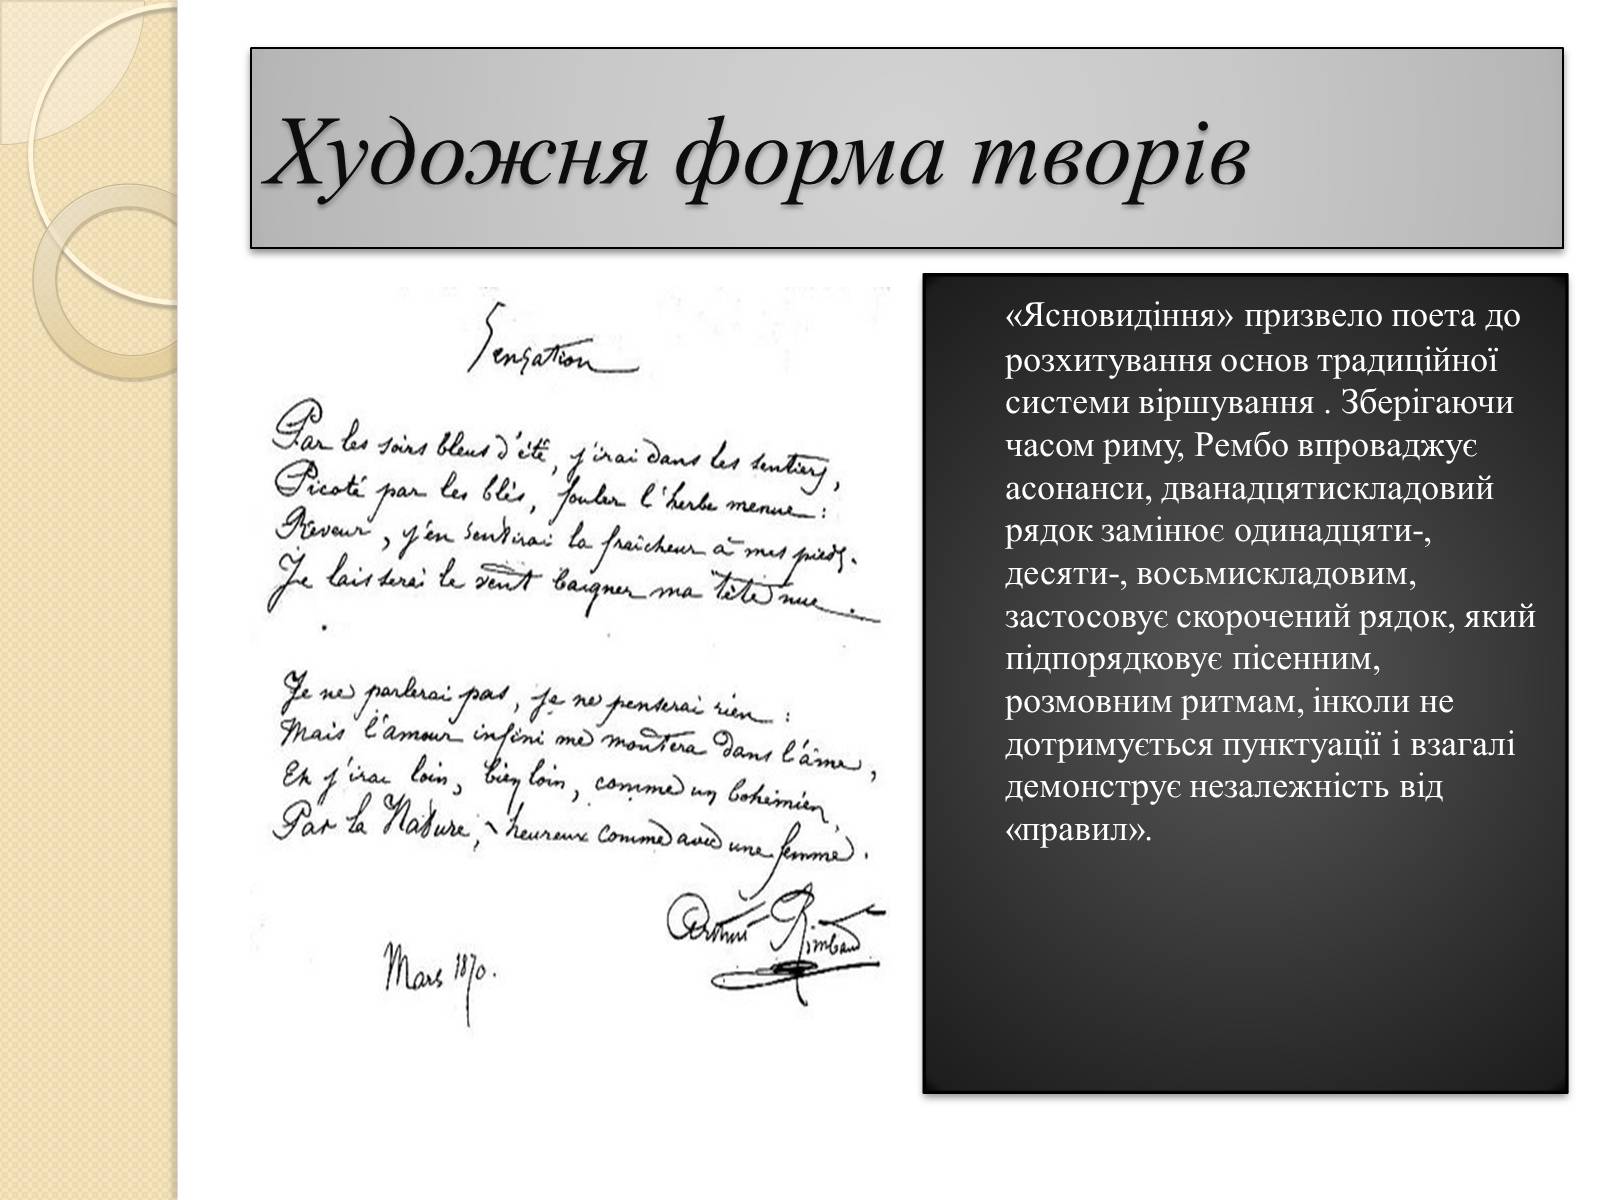 Художня форма творів
Sensation
Par les soirs bleus d'été, j'irai dans les sentiers,
Picoté par les blés, fouler l'herbe menue :
Rêveur, j'en sentirai la fraîcheur à mes pieds.
Je laisserai le vent baigner ma tête nue.
Je ne parlerai pas, je ne penserai rien :
Mais l'amour infini me montera dans l'âme,
Et j'irai loin, bien loin, comme un bohémien,
Par la Nature, heureux comme avec une femme.
Arthur Rimbaud
Mars 1870.
«Ясновидіння» призвело поета до
розхитування основ традиційної
системи віршування . Зберігаючи
часом риму, Рембо впроваджує
асонанси, дванадцятискладовий
рядок замінює одинадцяти-,
десяти-, восьмискладовим,
застосовує скорочений рядок, який
підпорядковує пісенним,
розмовним ритмам, інколи не
дотримується пунктуації і взагалі
демонструє незалежність від
«правил».